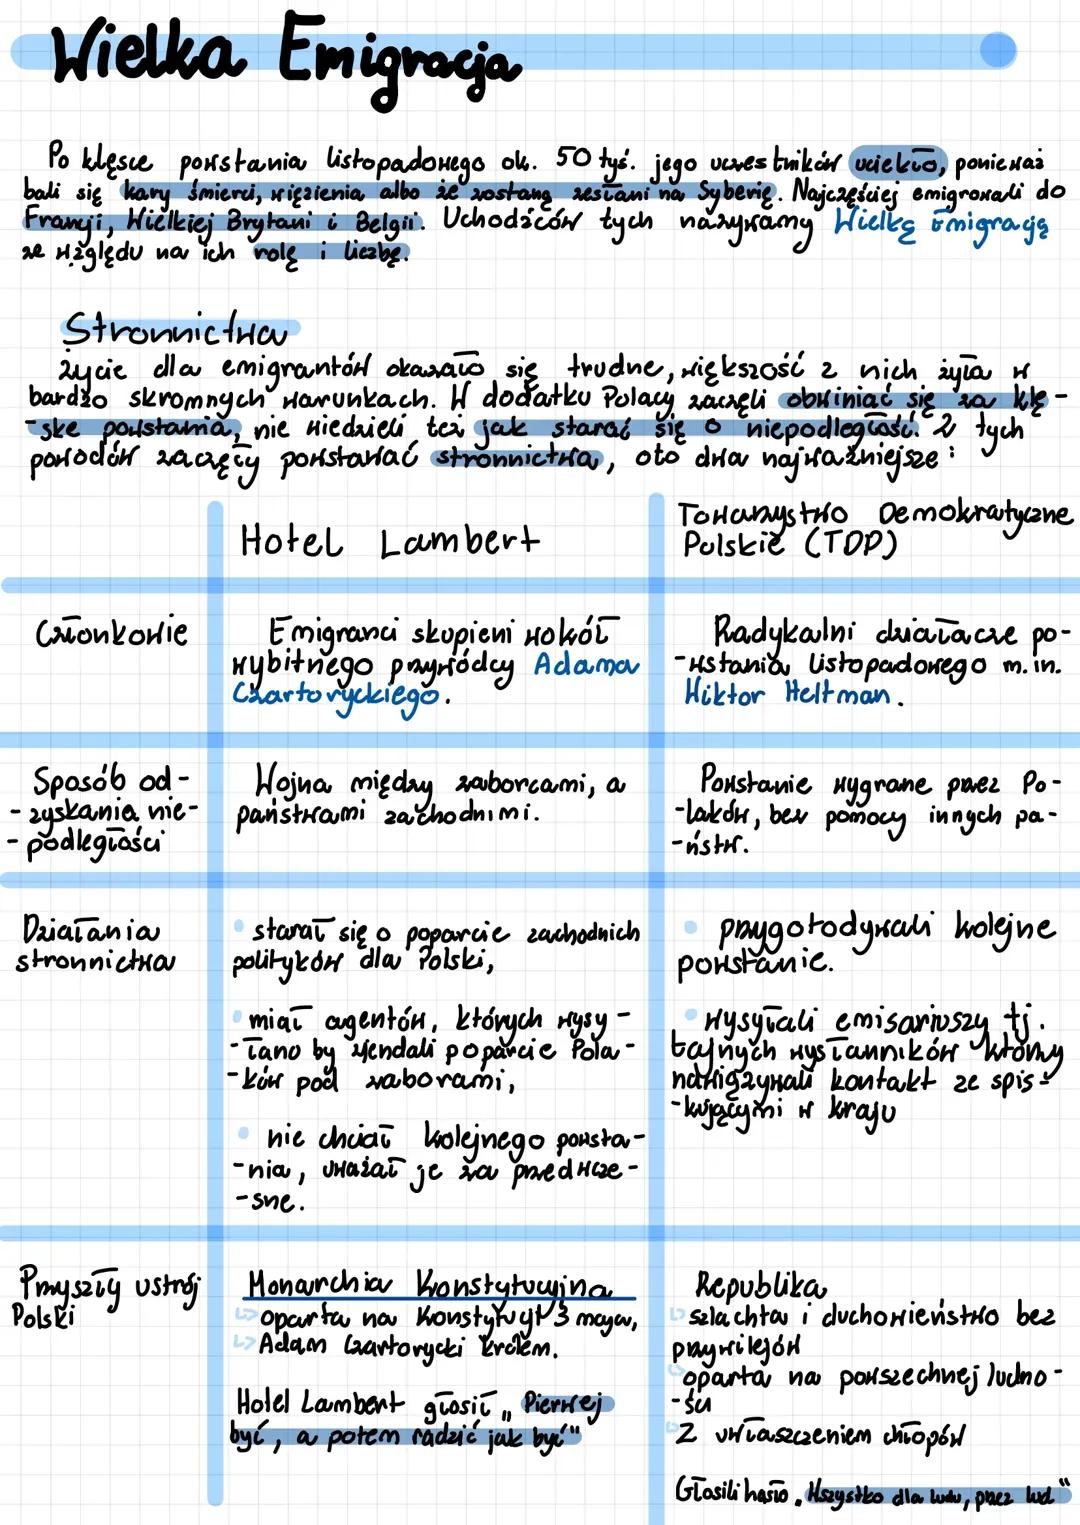 Wielka Emigracja
Po klęsce powstania listopadowego ok. 50 tyś. jego uczestników uciekło, ponieważ
bali się kary śmierci, więzienia albo że zostaną zesłani na Syberię. Najczęściej emigrowali do
Francji, Wielkiej Brytani i Belgii. Uchodźców tych nazywamy Wielką Emigracją
ze względu na ich rolę i liczbę.
Stronnictwa
Życie dla emigrantów okazało się trudne, większość z nich żyła w
bardzo skromnych warunkach. W dodatku Polacy zaczęli obwiniać się za klę-
-skę powstania, nie wiedzieli też jak starać się o niepodległość. Z tych
powodów zaczęły powstawać stronnictwa, oto dwa najważniejsze:
Hotel Lambert
Towarzystwo Demokratyczne
Polskie (TDP)
Członkowie
Emigranci skupieni wokół
wybitnego przywódcy Adama
Czartoryckiego.
Radykalni działacze po-
-wstania listopadowego m.in.
Wiktor Heltman.
Sposób od-
-zyskania nie-
-podległości
Wojna między zaborcami, a
państwami zachodnimi.
Powstanie wygrane przez Po-
-laków, bez pomocy innych pa-
-ństw.
Działania
stronnictwa
• starał się o poparcie zachodnich
polityków dla Polski,
• miał agentów, których wysy-
-łano by zjendali poparcie Pola-
-ków pod zaborami,
• nie chciał kolejnego powsta-
-nia, uważał je za przedwcze-
-sne.
• przygotodywali kolejne
powstanie.
• wysyłali emisariuszy tj.
tajnych wysłanników którzy
nawiązywali kontakt ze spis-
-kującymi w kraju
Przyszły ustrój
Polski
Monarchia Konstytucyjna
↳ oparta na Konstytycji 3 maja,
↳ Adam Czartorycki królem.
Hotel Lambert głosił „Pierwej
być, a potem radzić jak być"
Republika
↳ szlachta i duchowieństwo bez
przywilejów
↳ oparta na powszechnej ludno-
-ści
↳ Z uwłaszczeniem chłopów
Głosili hasło „Wszystko dla ludu, przez lud"